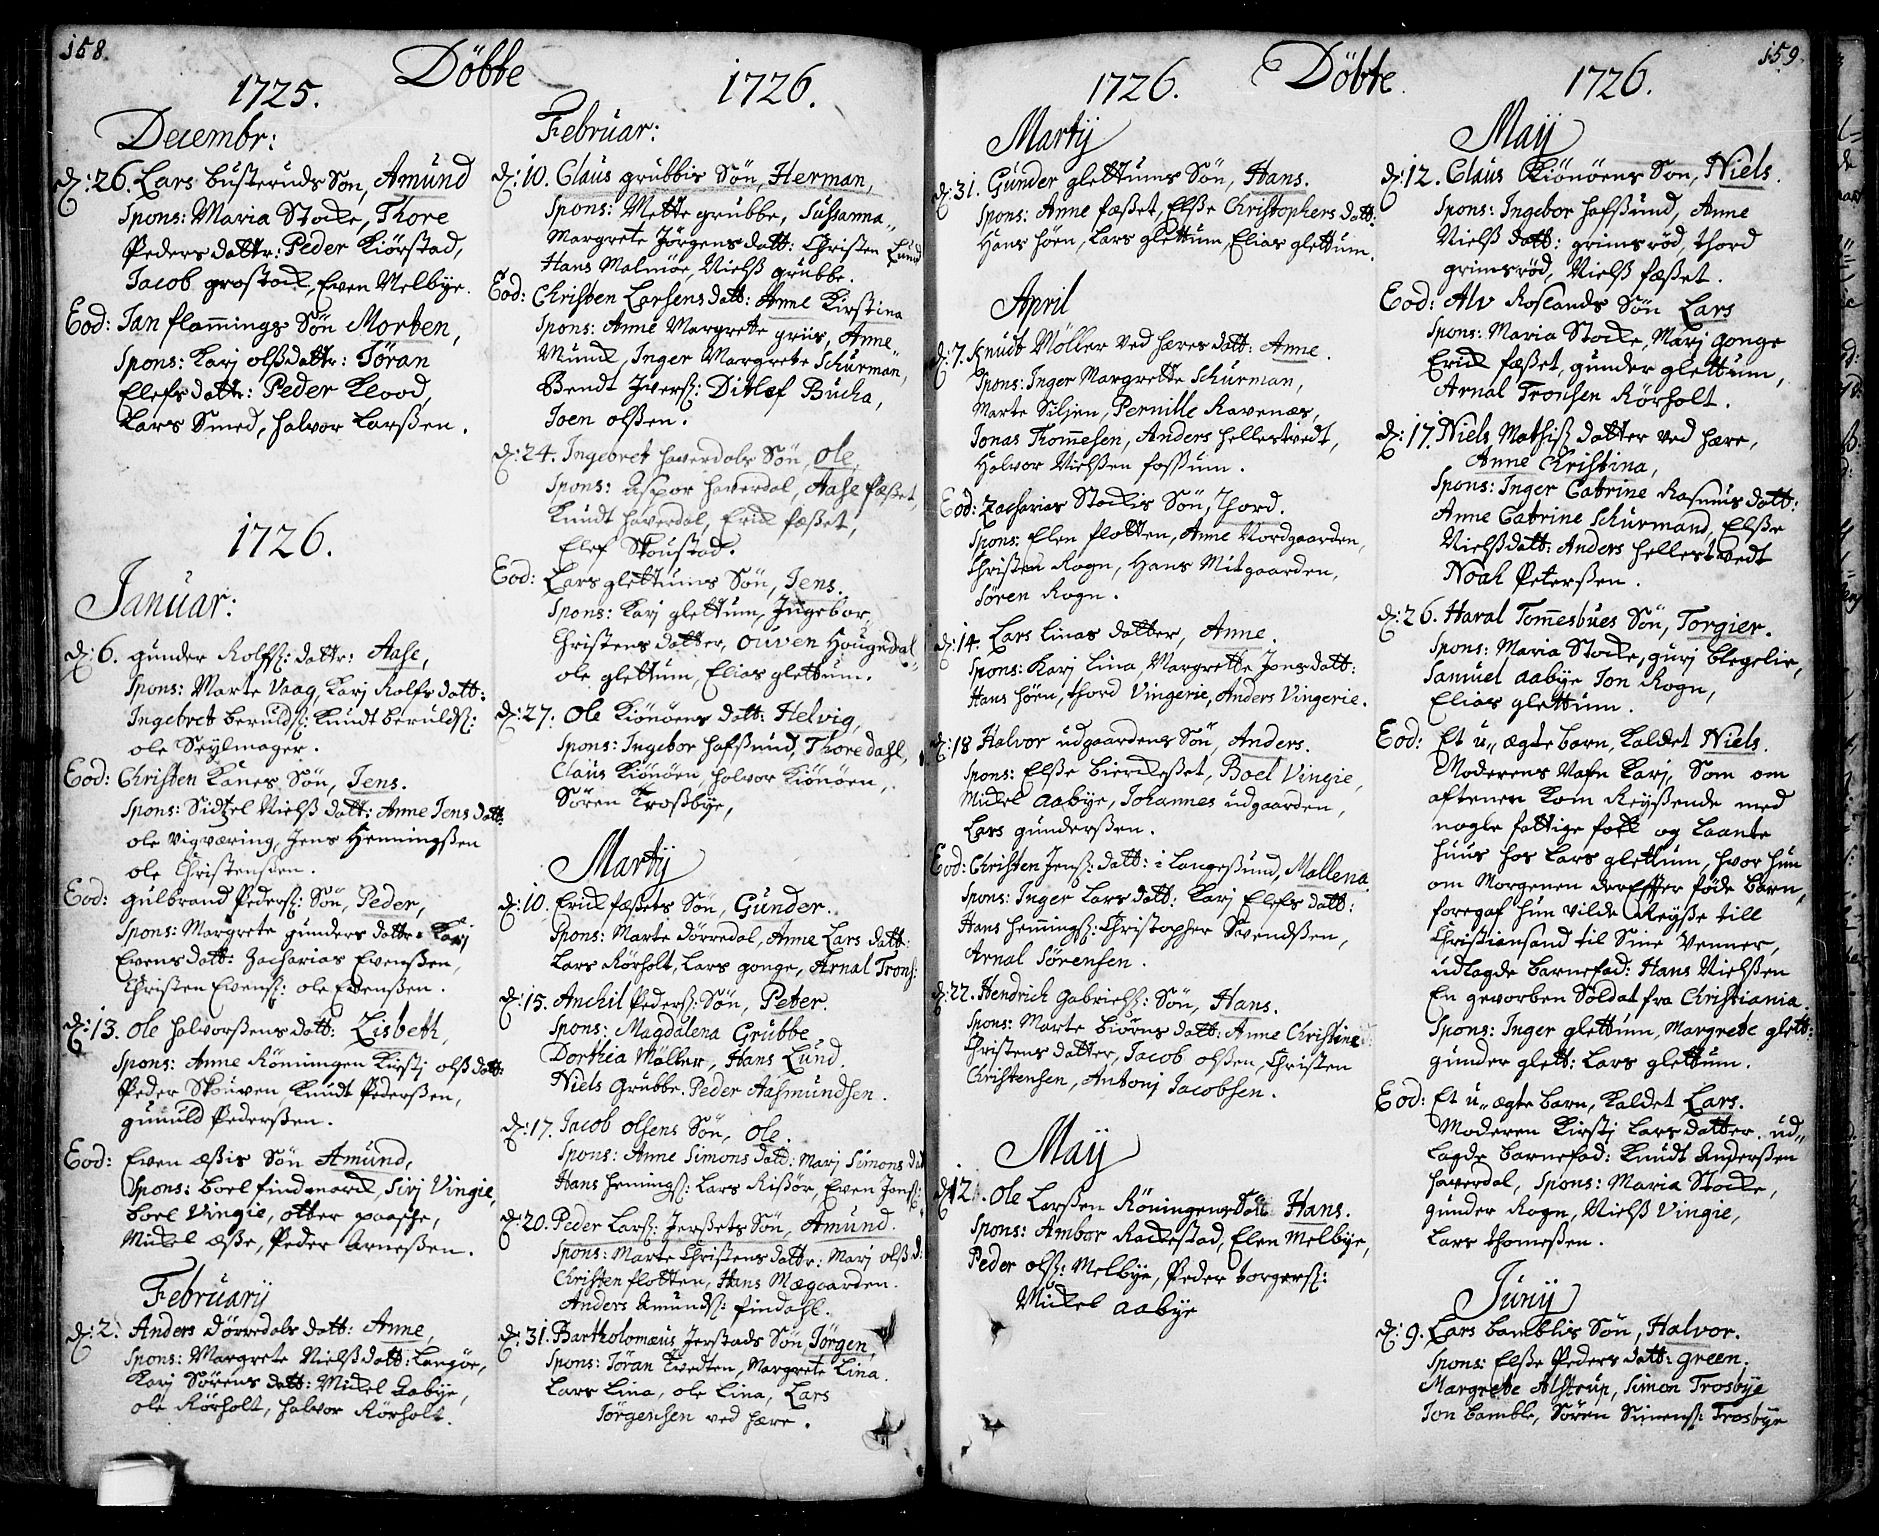 158.
Döbte
1725.
Decembr:
d: 26. Lars busteruds Søn, Amund
Spons: Maria Stocke, Thore
Peders dattr: Peder Kiörstad,
Jacob grostock, Even Melbye.
Eod: Jan flammings Søn Morten,
Spons: Karj olsdattr: Töran
Elefs dattr: Peder Klood,
Lars Smed, halvor Larssen.
1726.
Januar:
d: 6. gunder Rolfs: dattr: Aase,
Spons: Marte Vaag, Karj Rolfs datt:
Ingebret beruls: Knudt beruls:
ole Seylmager.
Eod: Christen Kanes Søn, Jens.
Spons: Sidzel Niels datt: Anne Jens datt:
ole Vigværing, Jens Henningssen
ole Christensen.
Eod: gulbrand Peders: Søn, Peder,
Spons: Margrete gunders dattr: Karj
Evens datt: Zacharias Evenssen,
Christen Evens: ole Evenssen.
d: 13. ole halvorssens datt: Lisbeth,
Spons: Anne Röningen Kirstj ols datt:
Peder Skouven, Knudt Pederssen,
gunuld Pederssen.
Eod: Even æsis Søn Amund,
Spons: boel findmarck, Sirj Vingie,
boel Vingie, otter paaske,
Mickel æse, Peder Arnessen.
Februarij
d: 2. Anders Dörredals datt: Anne,
Spons: Margrete Niels datt: Langöe,
Karj Sörens datt: Mickel Aabye,
ole Rörholt, halvor Rörholt.
1726.
Februar:
d: 10. Claus grubbis Søn, Herman,
Spons: Mette grubbe, Sussanna
Margrete Jörgens datt: Christen Lund
Hans Malmöe, Niels grubbe.
Eod: Christen Larsens datt: Anne Kirstina
Spons: Anne Margrete griis, Anne
Munck, Inger Margrete Schurman,
Bendt Ivers: Ditlef Bucka,
Joen olssen.
d: 24. Ingebret haverdals Søn, ole,
Spons: Aspor haverdal, Aase fæset,
Knudt haverdal, Erick fæset,
Elef Skoustad.
Eod: Lars glettums Søn, Jens.
Spons: Karj glettum, Ingebor
Christens datter, ouven Hougedal
ole glettum, Elias glettum.
d: 27. ole Kiönöens datt: Helvig,
Spons: Ingebor hafsund, Thore dahl,
Claus Kiönöen, halvor Kiönöen,
Sören Trosbye,
Martij
d: 10. Erick fæsets Søn, Gunder.
Spons: Marte Dörredal, Anne Lars datt:
Lars Rörholt, Lars gonge, Arnal Trons:
d: 15. Anckil Peders: Søn, Peter.
Spons: Magdalena Grubbe
Dorthia Möller, Hans Lund.
Niels Grubbe. Peder Aasmundsen.
d: 17. Jacob olsens Søn, ole.
Spons: Anne Simons datt: Marj Simons dat
Hans Hennings: Lars Risör, Even Jens:
d: 20. Peder Lars: Jersets Søn, Amund.
Spons: Marte Christens dattr: Marj ols d:
Christen flotten, Hans Mægaarden.
Anders Amunds: findahl.
d: 31. Bartholomæus Jerstads Søn Jörgen,
Spons: Töran Tvedten, Margrete Lina.
Lars Lina, ole Lina, Lars
Jörgensen ved hære.
159.
Döbte.
1726.
Martij
d: 31. Gunder glettums Søn, Hans.
Spons: Anne fæset, Else Christophers datt:
Hans höen, Lars glettum, Elias glettum.
April
d: 7. Knudt Möller ved hæres datt: Anne.
Spons: Inger Margrette Schurman,
Marte Siljen, Pernille Ravenæs,
Jonas Thommesen, Anders hellestvedt,
Halvor Nielssen fossum.
Eod: Zacharias Stockis Søn, Thord.
Spons: Elen flotten, Anne Nordgaarden,
Christen Rogn, Hans Mitgaarden,
Sören Rogn.
d: 14. Lars Linas datter, Anne.
Spons: Karj Lina Margrette Jons datt:
Hans höen, thord Vingerie, Anders Vingerie.
d: 18 Halvor udgaardens Søn, Anders.
Spons: Else bierckeset, Boel Vingie,
Mickel Aabye, Johannes udgaarden,
Lars gunderssen.
Eod: Christen Jens: datt: i Langesund, Mallena.
Spons: Inger Lars datt: Karj Elefs datt:
Hans Hennings: Christopher Svendssen,
Arnal Sörensen.
d: 22. Hendrich Gabriels: Søn, Hans.
Spons: Marte biörns datt: Anne Christine
Christens datter, Jacob olssen, Christen
Christensen, Antonj Jacobsen.
Maij
d: 12. ole Larssen Röningens Søn Hans.
Spons: Ambor Rackestad, Elen Melbye,
Peder ols: Melbye, Peder torgers:
Mickel aabye
1726.
Maij
d: 12. Claus Kiönöens Søn, Niels.
Spons: Ingebor hafsund, Anne
Niels datt: grimsröd, thord
grimsröd, Niels fæset.
Eod: Alv Roslands Søn Lars
Spons: Maria Stocke, Marj gonge
Erick fæset, gunder glettum,
Arnal Tronsen Rörholt.
d: 17. Niels Mathis datter ved hære,
Anne Christina,
Spons: Inger Catrine Rasmus datt:
Anne Catrine Schurmand, Else
Niels datt: Anders hellestvedt
Noah Peterssen.
d: 26. Haral Tommesbues Søn, Torgier.
Spons: Maria Stocke, gurj blegelie,
Samuel aabye Jon Rogn,
Elias glettum.
Eod: Et u-ægte barn, kaldet Niels.
Moderens Nafn Karj, Som om
aftenen kom Reyssende med
nogle fattige folk og laante
huus hos Lars glettum, hvor hun
om Morgenen derEffter föde barn,
foregaf hun vilde Reyse till
Christiansand til Sine Venner,
udlagde barnefad: Hans Nielssen
En gevorben Soldat fra Christiania.
Spons: Inger glettum, Margrete glett:
gunder glett: Lars glettum.
Eod: Et u-ægte barn, kaldet Lars.
Moderen Kirstj Lars datter. ud-
lagde barnefad: Knudt Anderssen
haverdal, Spons: Maria Stocke,
gunder Rogn, Niels Vingie,
Lars thomessen.
Junij
d: 9. Lars bamblis Søn, Halvor.
Spons: Else Peders datt: green.
Margrete Alstrup, Simon Trosbye
Jon bamble, Sören Simens: Trosbye